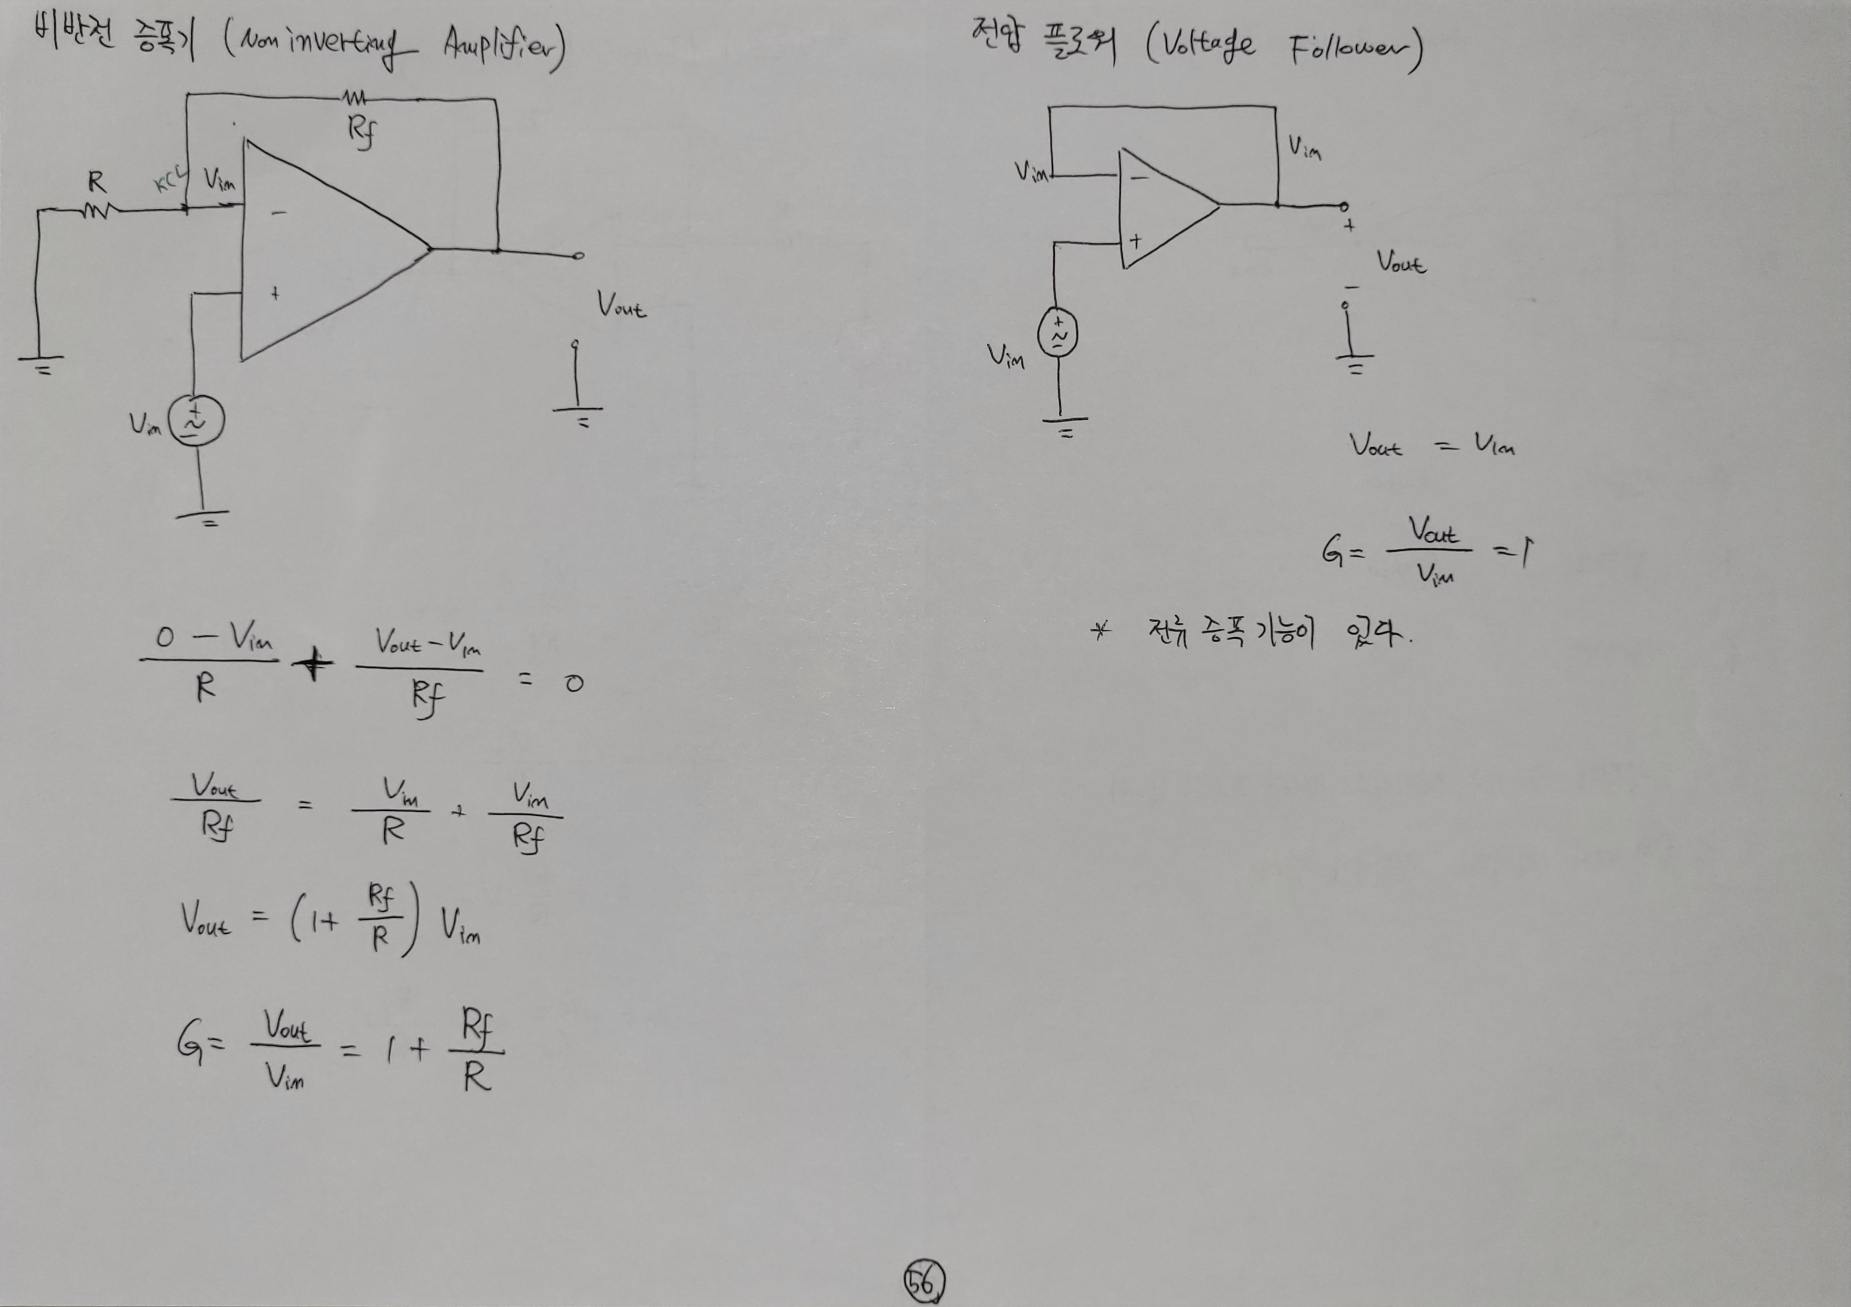 비반전 증폭기 (Non inverting Amplifier)
Rf
R
KCL
Vin
−
+
Vout
Vin
0 − Vin / R + Vout − Vin / Rf = 0
Vout / Rf = Vin / R + Vin / Rf
Vout = (1 + Rf / R) Vin
G = Vout / Vin = 1 + Rf / R
전압 플로워 (Voltage Follower)
Vin
Vin
−
+
+
Vout
−
+
−
Vin
Vout = Vin
G = Vout / Vin = 1
* 전류 증폭 기능이 있다.
56